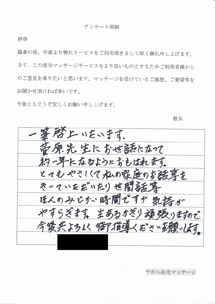 アンケート用紙
拝啓
陽春の候、平素より弊社サービスをご利用頂きまして厚く御礼申し上げます。
さて、この度当マッサージサービスをより良いものとするためご利用者様から
のご意見を承りたいと思います。マッサージを受けているご感想、ご要望等を
お聞かせ頂ければ幸いです。
今後ともどうぞ宜しくお願い申し上げます。
敬具
一筆啓上いたします。
菅原先生にお世話になって
約一年になるようにおもはれます。
とてもやさしくて私の家庭のお話等を
きいていただいたり世間話等
ほんのみじかい時間ですが気持が
やすらぎます。生あるかぎり頑張りますので
今後共よろしく御指導くださいお願いします。
やわら在宅マッサージ